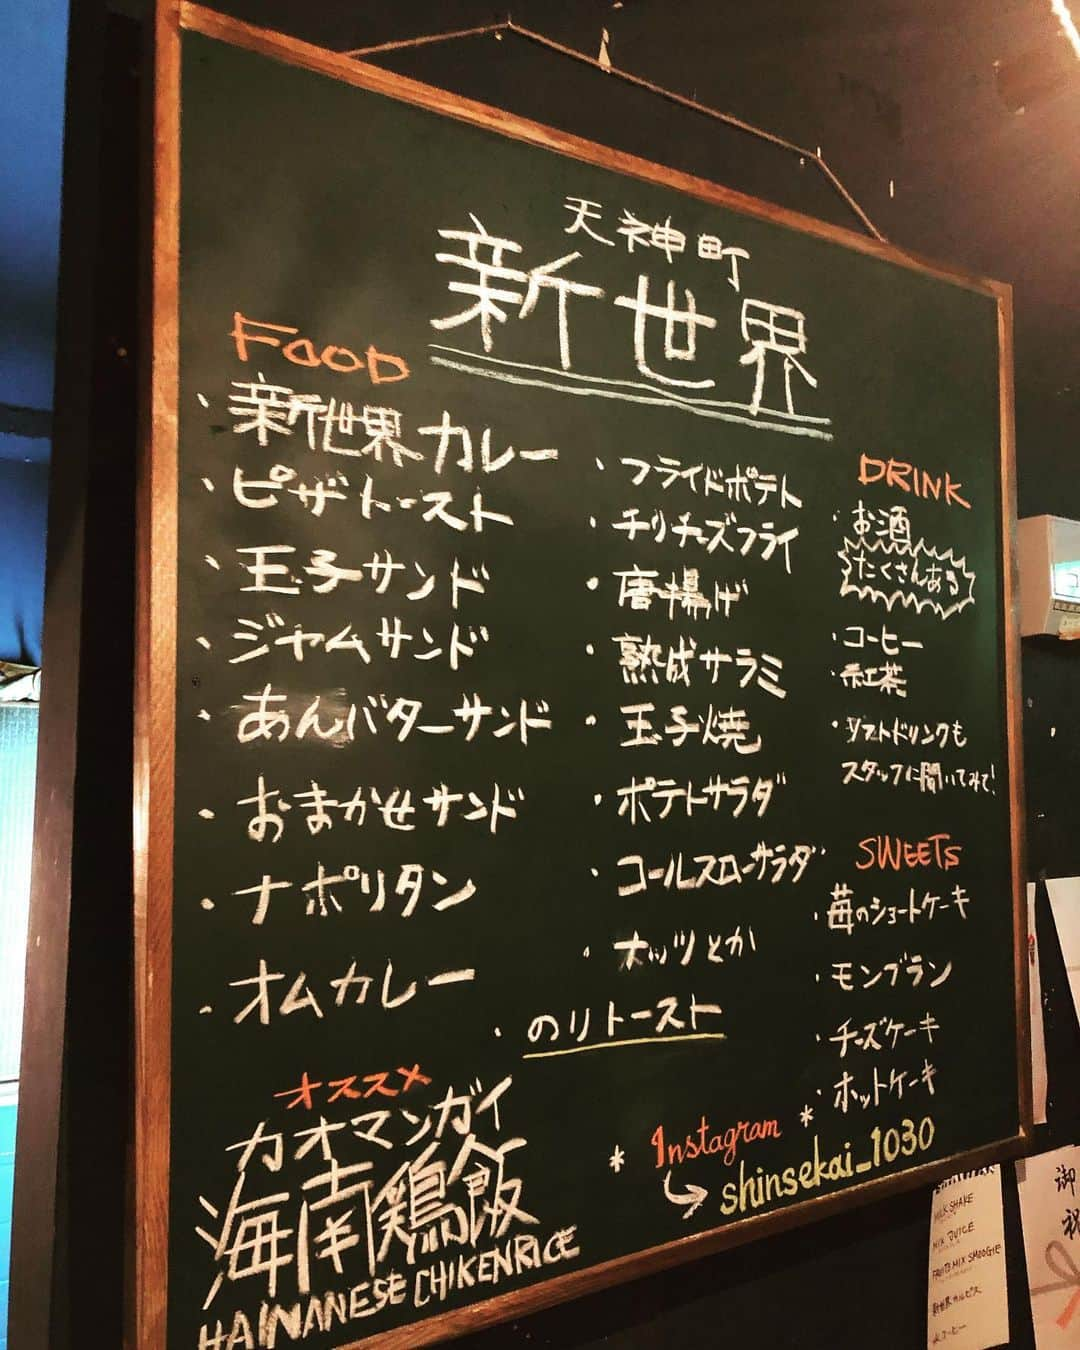 天神町
新世界
FOOD
・新世界カレー
・ピザトースト
・玉子サンド
・ジャムサンド
・あんバターサンド
・おまかせサンド
・ナポリタン
・オムカレー
・フライドポテト
・チリチーズフライ
・唐揚げ
・熟成サラミ
・玉子焼
・ポテトサラダ
・コールスローサラダ
・ナッツとか
・のりトースト
DRINK
・お酒
たくさんある
・コーヒー
・紅茶
・ソフトドリンクも
スタッフに聞いてみて!
SWEETS
・苺のショートケーキ
・モンブラン
・チーズケーキ
・ホットケーキ
オススメ
カオマンガイ
海南鶏飯
HAINANESE CHIKENRICE
* Instagram *
shinsekai_1030
MILK SHAKE
MIX JUICE
FRUITS MIX SMOOGIE
新世界カルピス
水コーヒー
御祝